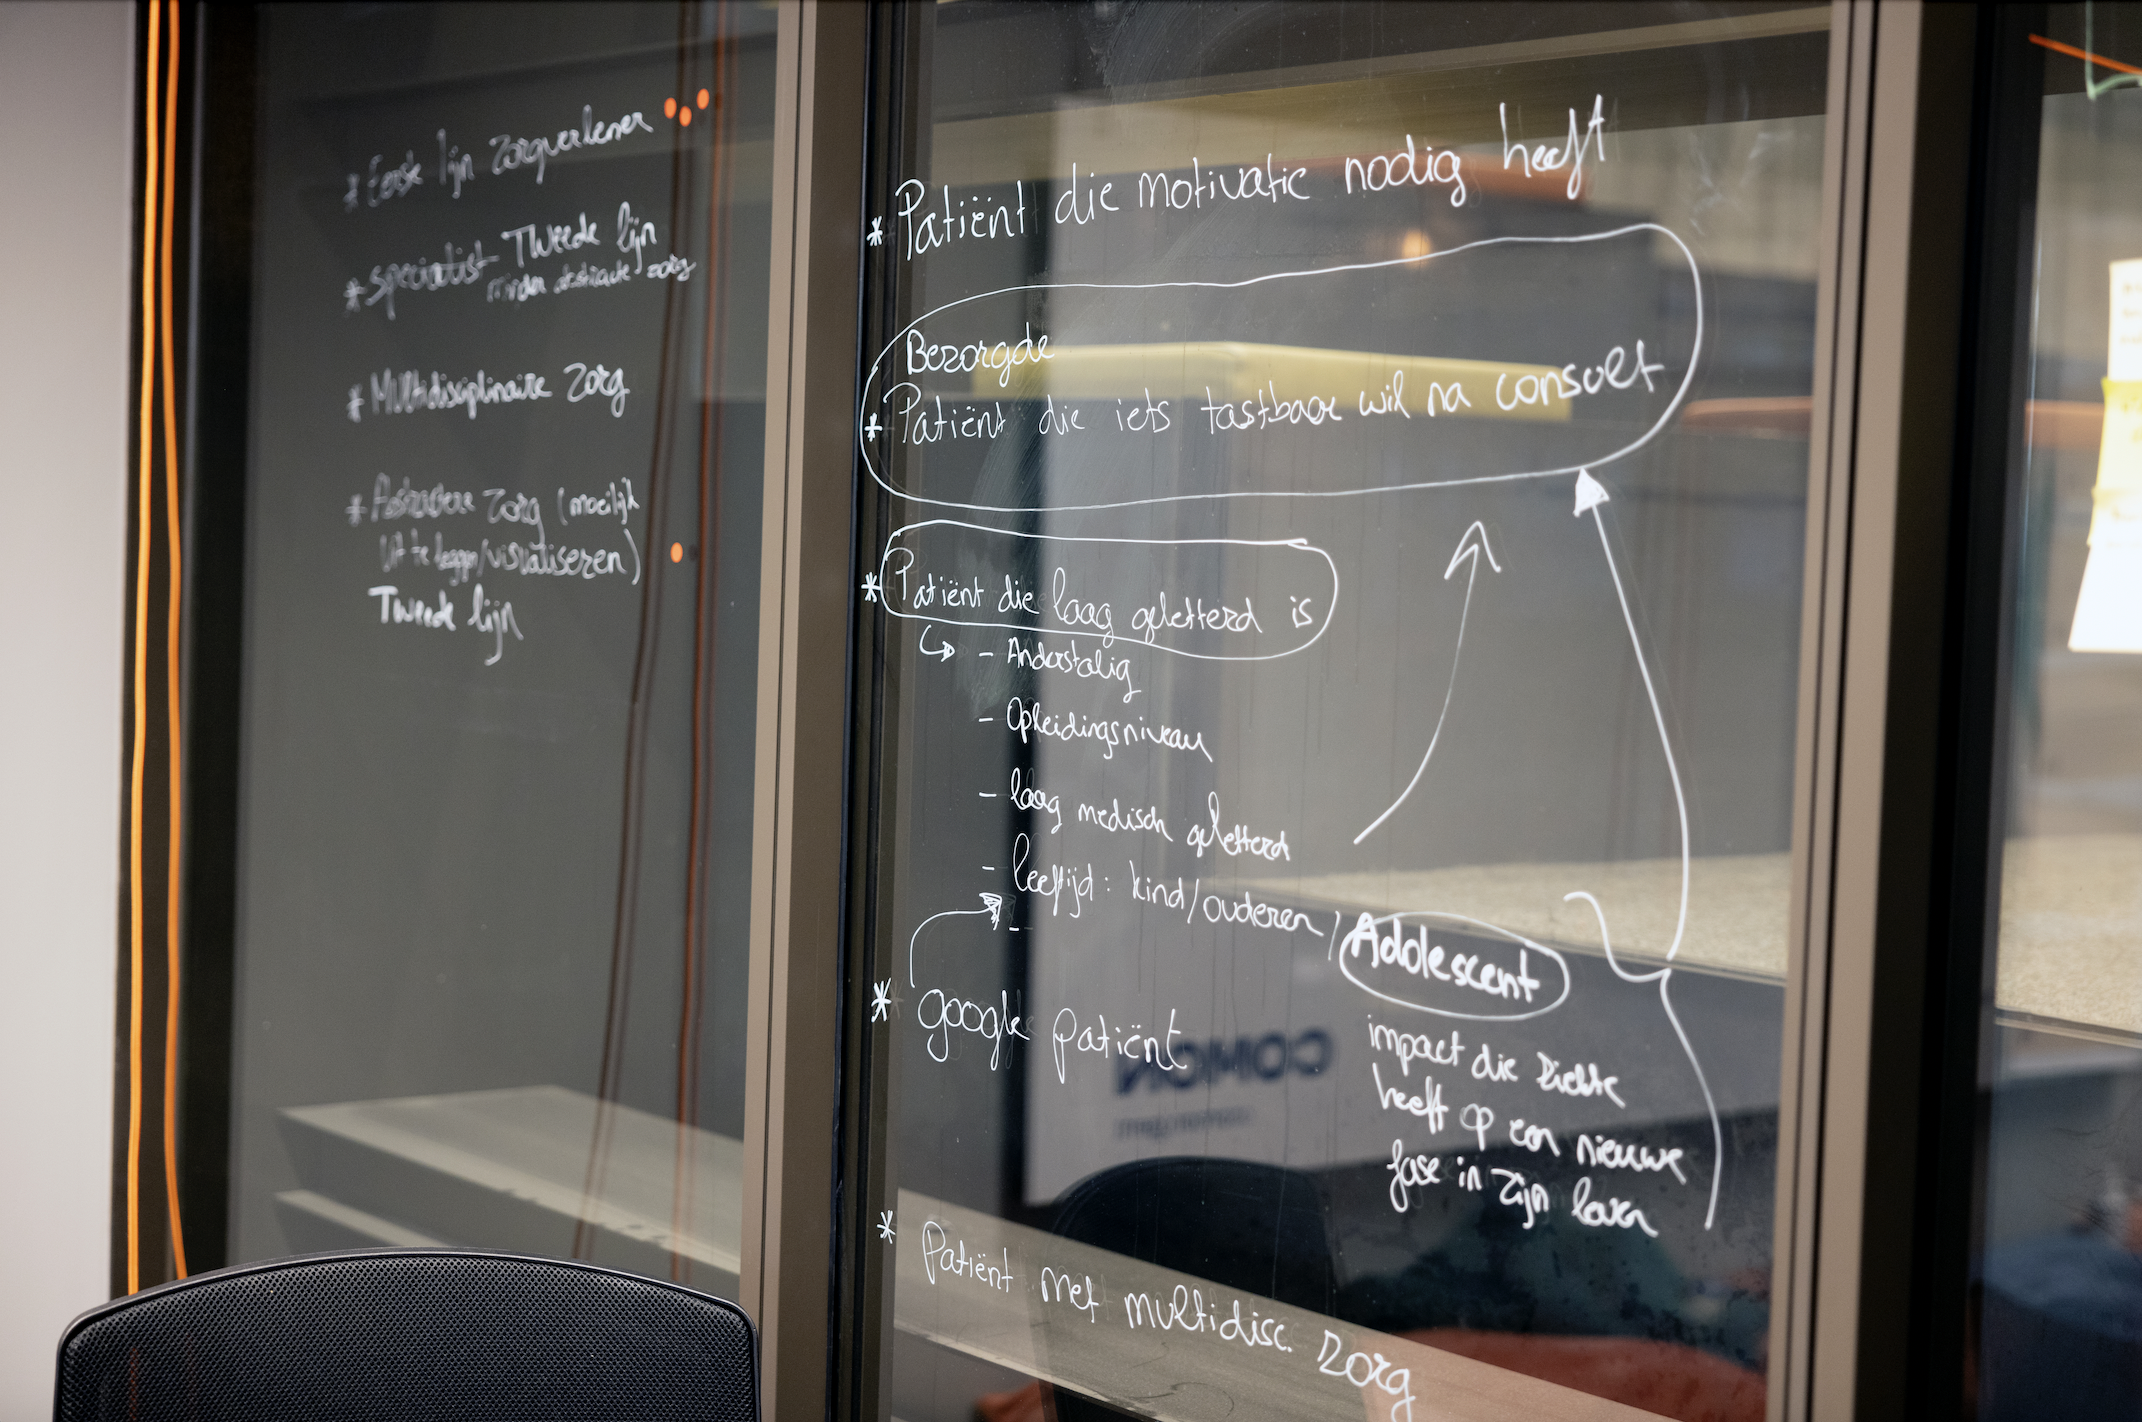 * Eerste lijn zorgverlener
* specialist Tweede lijn
minder abstracte zorg
* Multidisciplinaire zorg
* Abstractere zorg (moeilijk
uit te leggen/visualiseren)
Tweede lijn
* Patiënt die motivatie nodig heeft
Bezorgde
* Patiënt die iets tastbaar wil na consult
* Patiënt die laag geletterd is
- Anderstalig
- Opleidingsniveau
- laag medisch geletterd
- leeftijd : kind/ouderen / Adolescent
-
* google patiënt
impact die ziekte
heeft op een nieuwe
fase in zijn leven
* Patiënt met multidisc. zorg